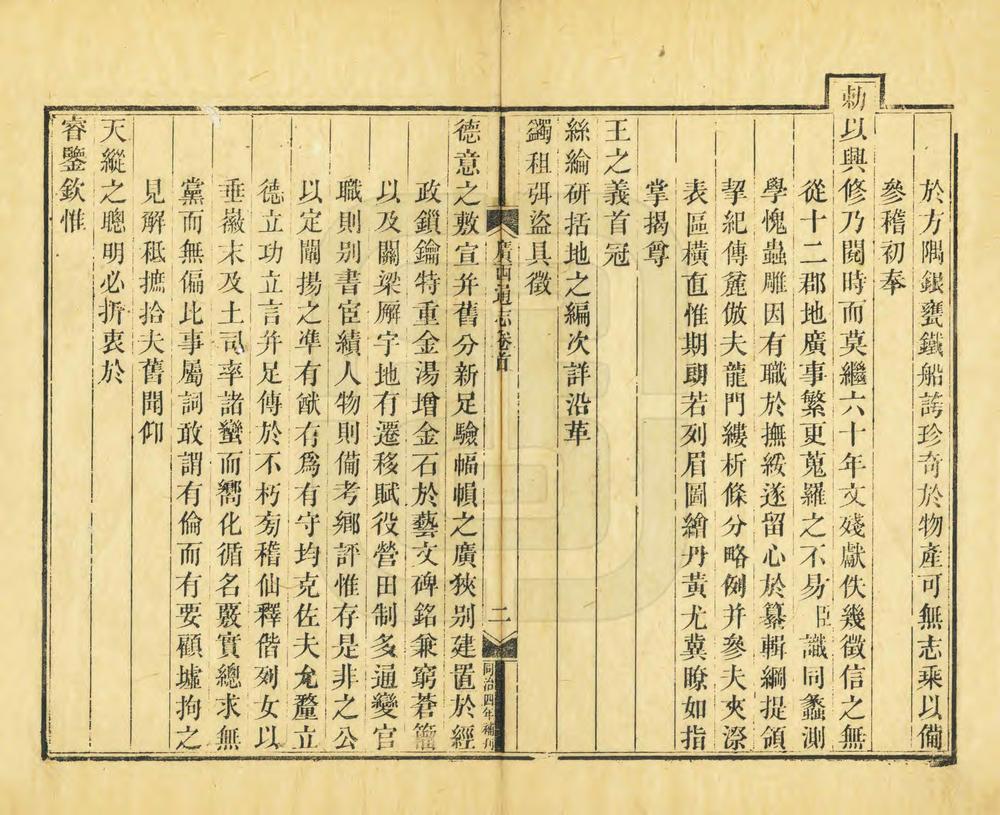 於方隅銀甕鐵船誇珍奇於物產可無志乘以備
參稽初奉
勅以興修乃閱時而莫繼六十年文殘獻佚幾徵信之無
從十二郡地廣事繁更蒐羅之不易臣識同蠡測
學愧蟲雕因有職於撫綏遂留心於纂輯綱提領
挈紀傳麓倣夫龍門縷析條分略例并參夫夾漈
表區橫直惟期朗若列眉圖繪丹黃尤冀瞭如指
掌揭尊
王之義首冠
絲綸硏括地之編次詳沿革
蠲租弭盜具徵
廣西通志卷首
二
同治四年補刊
德意之敷宣并舊分新足驗幅幀之廣狹别建置於經
政鎖鑰特重金湯增金石於藝文碑銘兼窮蒼籀
以及關梁廨宇地有遷移賦役營田制多通變官
職則别書宦績人物則備考鄉評惟存是非之公
以定闡揚之準有猷有爲有守均克佐夫允釐立
德立功立言并足傳於不朽旁稽仙釋偕列女以
垂徽末及土司率諸蠻而嚮化循名覈實總求無
黨而無偏比事屬詞敢謂有倫而有要顧墟拘之
見解祗摭拾夫舊聞仰
天縱之聰明必折衷於
睿鑒欽惟